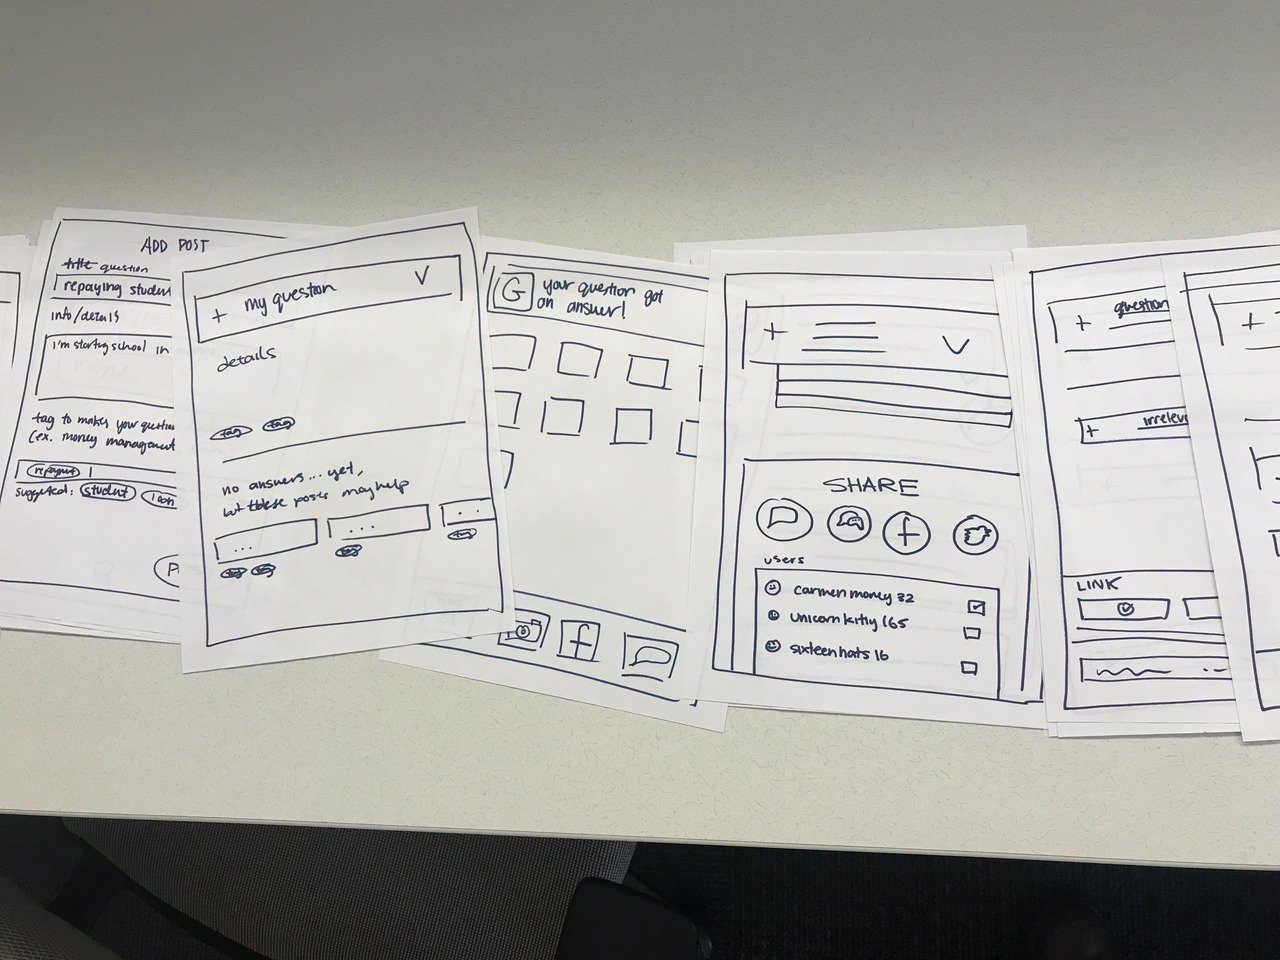 ADD POST
title question
repaying studen
info/details
i'm starting school in
tag to makes your question
(ex. money management
repayment
suggested: student loan
P
+ my question V
details
tag tag
no answers... yet,
but these posts may help
...
...
...
tag
tag
tag tag
G your question got
an answer!
f
+
SHARE
f
users
carmen money 32
unicorn kitty 165
sixteen hats 16
+ question
+ irrelev
LINK
+